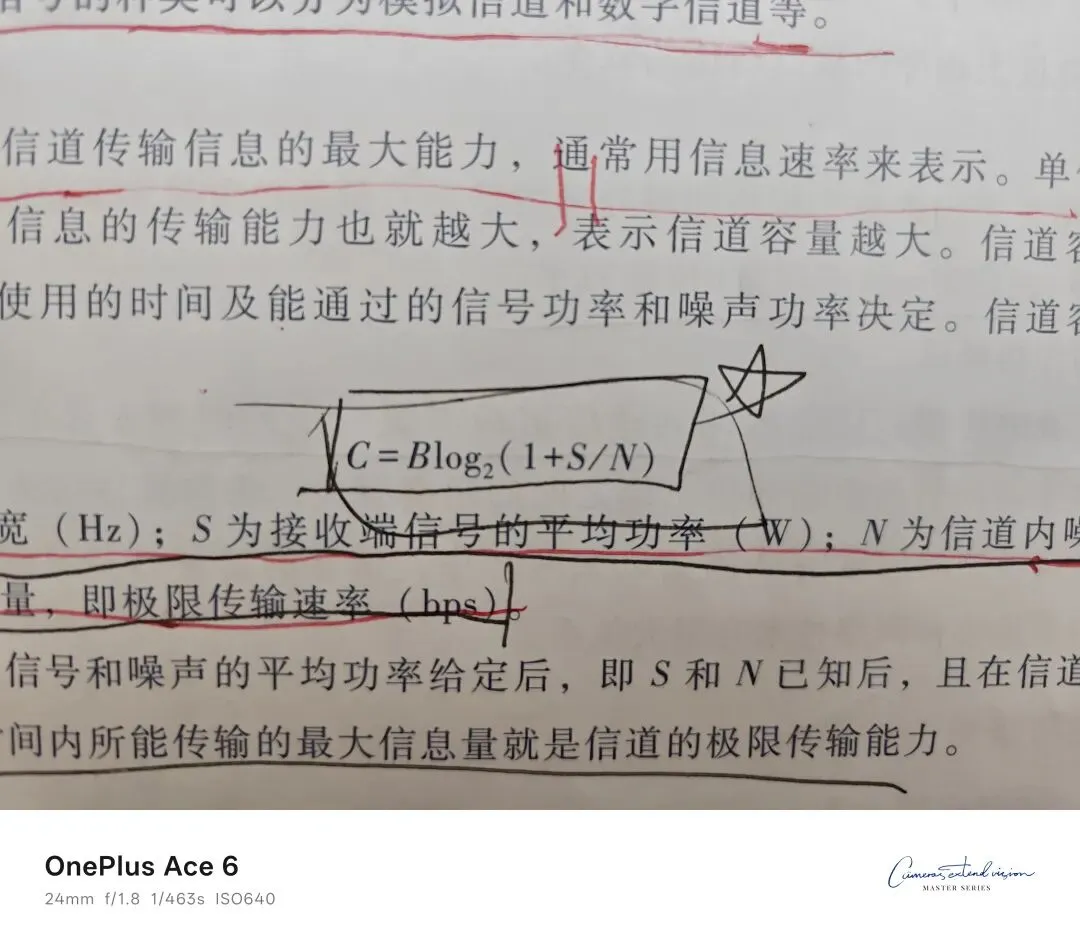 信号的种类可以分为模拟信道和数字信道等。
信道传输信息的最大能力，通常用信息速率来表示。单
信息的传输能力也就越大，表示信道容量越大。信道容
使用的时间及能通过的信号功率和噪声功率决定。信道容
C=Blog₂(1+S/N)
宽（Hz）；S为接收端信号的平均功率（W）；N为信道内噪
量，即极限传输速率（bps）。
信号和噪声的平均功率给定后，即S和N已知后，且在信道
间内所能传输的最大信息量就是信道的极限传输能力。
OnePlus Ace 6
24mm f/1.8 1/463s ISO640
Cameras extend vision
MASTER SERIES